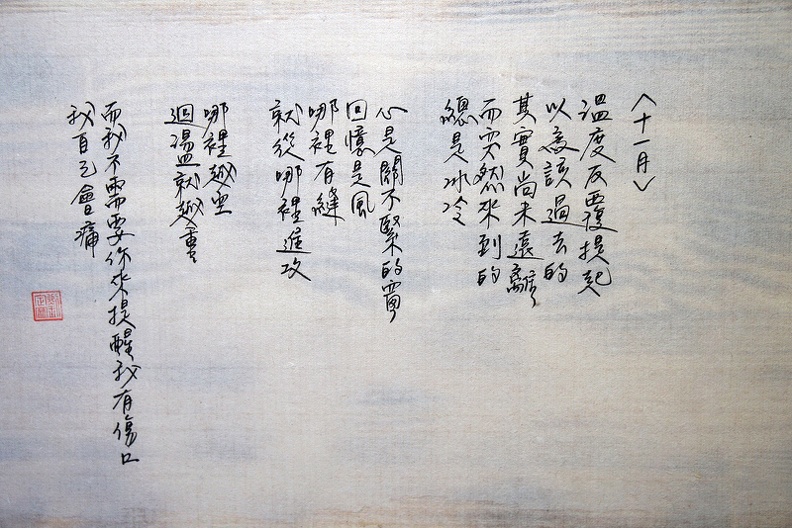 〈十一月〉
溫度反覆提起
以為該過去的
其實尚未遠離
而突然來到的
總是冰冷
心是關不緊的窗
回憶是風
哪裡有縫
就從哪裡進攻
哪裡越空
迴盪就越重
而我不需要你來提醒我有傷口
我自己會痛